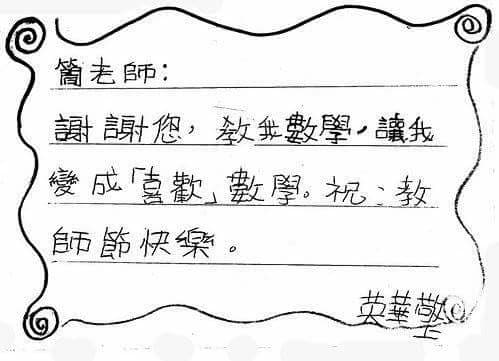 簡老師：
謝謝您，教我數學，讓我
變成「喜歡」數學。祝：教
師節快樂。
英華敬上